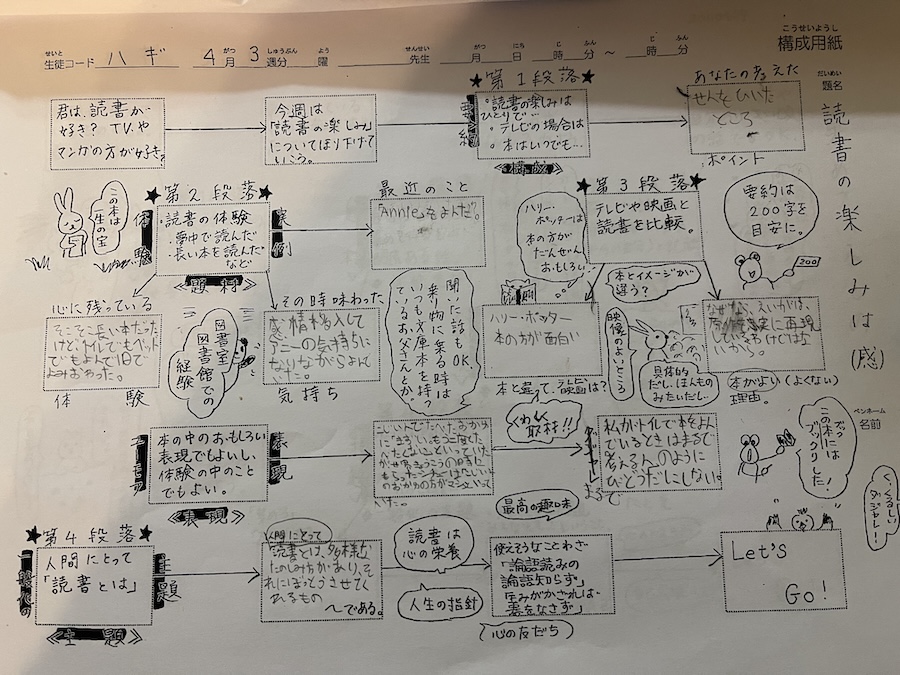 構成用紙
こうせいようし
せいと がつ しゅうぶん よう せんせい がつ にち じ ふん じ ふん
生徒コード ハギ 4月 3週分 曜 先生 月 日 時 分 〜 時 分
だいめい
題名
読書の楽しみは(感)
ペンネーム
名前
君は、読書が
好き? TVや
マンガの方が好き。
今週は
「読書の楽しみ」
についてほり下げて
いこう。
★第1段落★
要約
・読書の楽しみは
ひとりで…
・テレビの場合は
・本はいつでも…
《構成》
あなたの考えた
せんをひいた
ところ
ポイント
要約は
200字を
目安に。
200
この本は
一生の宝
★第2段落★
体験
実例
・読書の体験
・夢中で読んだ
・長い本を読んだ
など
《題材》
最近のこと
"Annie"をよんだ。
ハリー・
ポッターは
本の方が
だんぜん
おもしろい
★第3段落★
テレビや映画と
読書を比較。
心に残っている
そこそこ長い本だった
けど、トイレでもベッド
でもよんで1日で
よみおわった。
体験
図書室
図書館での
経験
その時味わった
感情移入して
アニーの気持ちに
なりながらよんで
いた。
気持ち
聞いた話もOK
乗り物に乗る時は
いつも文庫本を持っ
ているお父さんとか。
ハリー・ポッター
本の方が面白い
本と違って、テレビ・映画は?
本とイメージが
違う?
映像のよいところ
具体的
だし、ほんもの
みたいだし…
なぜなら、えいがは、
いるわけではな
いから。
本がよい(よくない)
理由。
本の中のおもしろい
表現でもよいし、
体験の中のこと
でもよい。
表現
《表現》
くわしく
取材!!
私がトイレで本をよ
んでいるときはまるで
考える人のように
びどうだにしない。
まるで
この本に
ブックりした!
く、くるしい
ダジャレ…
★第4段落★
人間にとって
「読書とは」
主題
《主題》
人間にとって
読書とは、多様な
たのしみ方があり、そ
れにぼっとうさせてく
れるもの
〜である。
読書は
心の栄養
人生の指針
最高の趣味
使えそうなことわざ
「論語読みの
論語知らず」
心の友だち
Let's
Go!